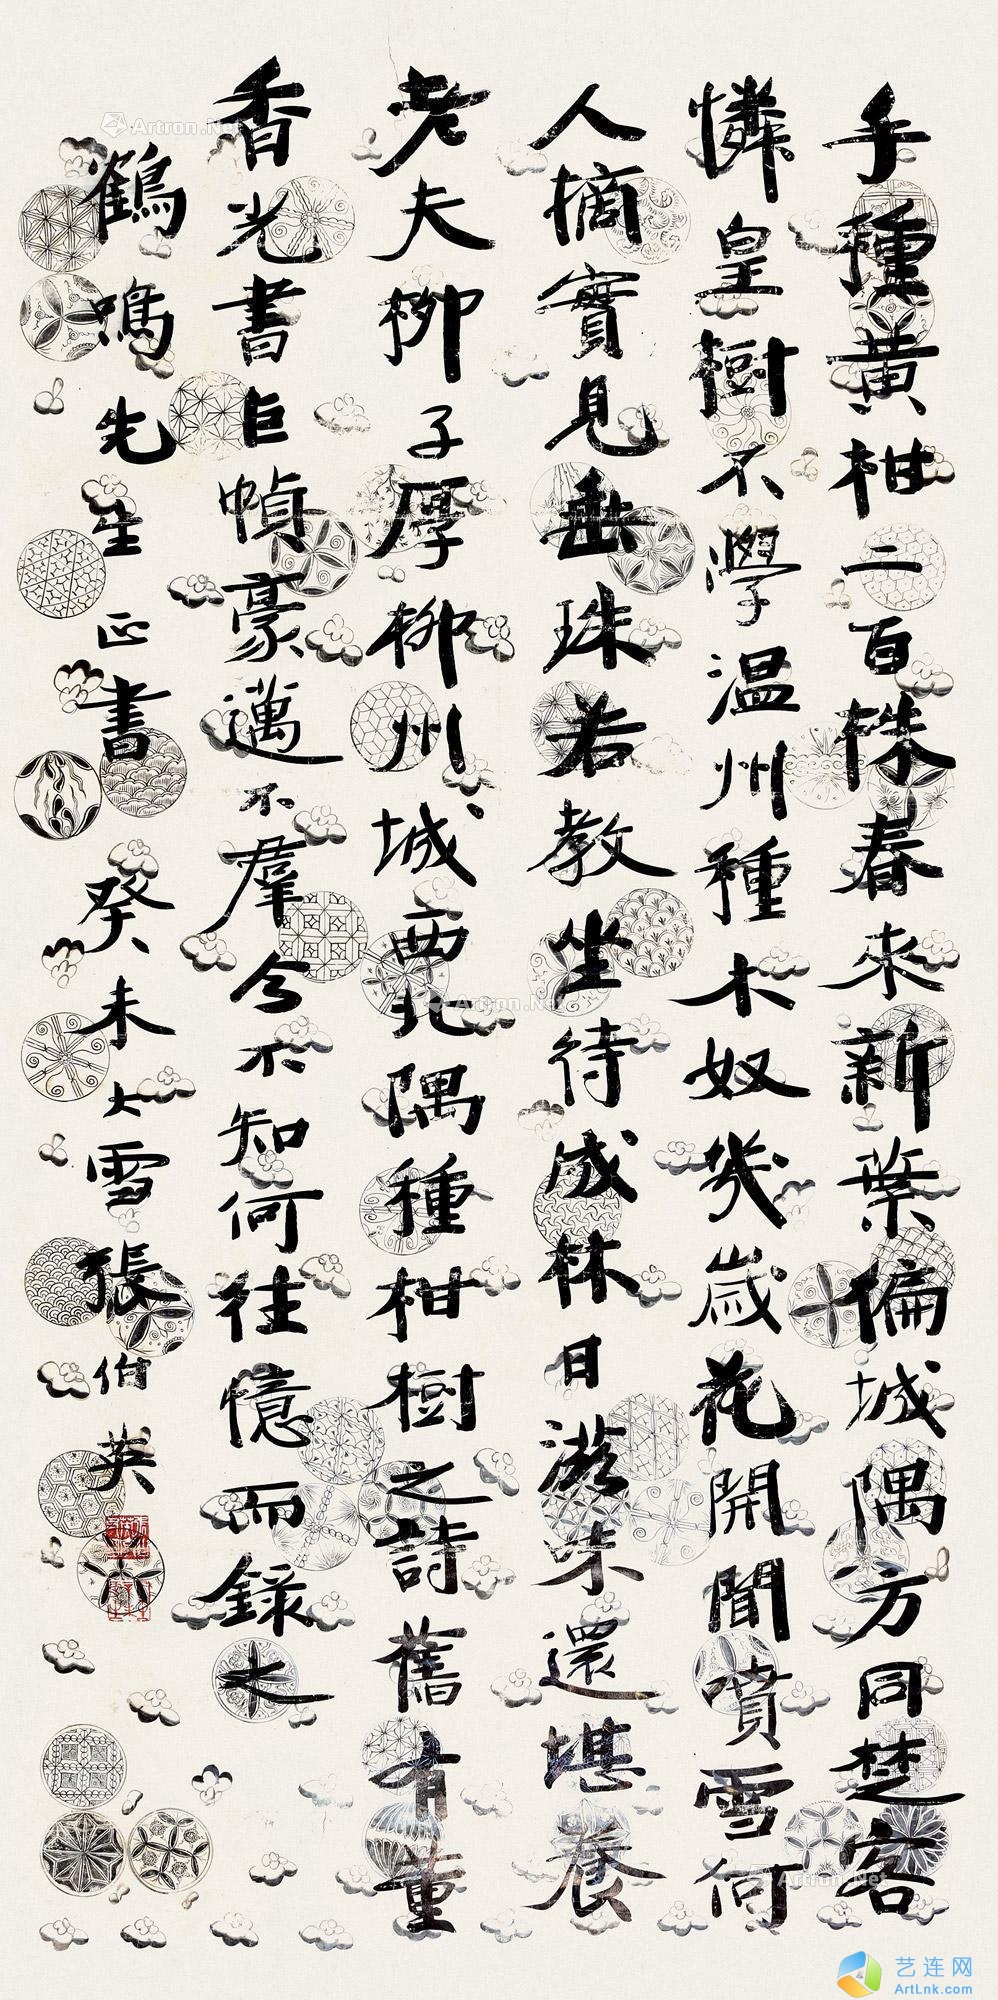 手種黃柑二百株春來新葉偏城隅方同楚客
憐皇樹不學溫州種木奴幾歲花開聞噴雪何
人摘實見垂珠若教坐待成林日滋味還堪養
老夫柳子厚柳州城西北隅種柑樹之詩舊有董
香光書巨幀豪邁不羣今不知何往憶而錄之
鶴鳴先生正書 癸未大雪張伯英
Artron.Net
Artron.Net
Artron.Net
艺连网
ArtLnk.com